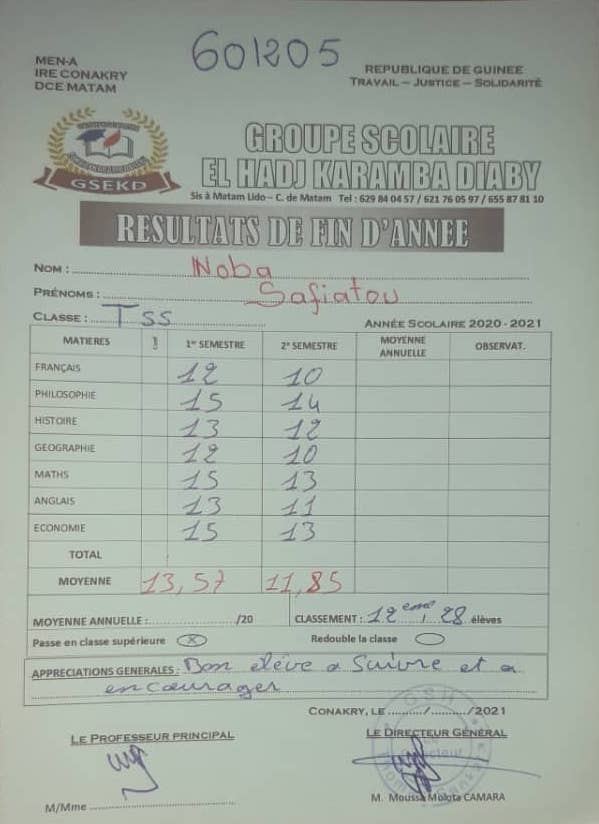 601205
MEN-A
IRE CONAKRY
DCE MATAM
REPUBLIQUE DE GUINEE
TRAVAIL – JUSTICE – SOLIDARITÉ
GSEKD
GROUPE SCOLAIRE
EL HADJ KARAMBA DIABY
Sis à Matam Lido – C. de Matam Tel : 629 84 04 57 / 621 76 05 97 / 655 87 81 10
RESULTATS DE FIN D'ANNEE
NOM : Noba
PRÉNOMS : Safiatou
CLASSE : TSS
ANNÉE SCOLAIRE 2020 - 2021
MATIERES 1er SEMESTRE 2e SEMESTRE MOYENNE ANNUELLE OBSERVAT.
FRANÇAIS 12 10
PHILOSOPHIE 15 14
HISTOIRE 13 12
GEOGRAPHIE 12 10
MATHS 15 13
ANGLAIS 13 11
ECONOMIE 15 13
TOTAL
MOYENNE 13,57 11,85
MOYENNE ANNUELLE : /20 CLASSEMENT : 12eme / 28 élèves
Passe en classe supérieure X Redouble la classe
APPRECIATIONS GENERALES : Bon élève a Suivre et a
encourager
CONAKRY, LE ........./........../2021
LE PROFESSEUR PRINCIPAL LE DIRECTEUR GÉNÉRAL
M/Mme
M. Moussa Molota CAMARA